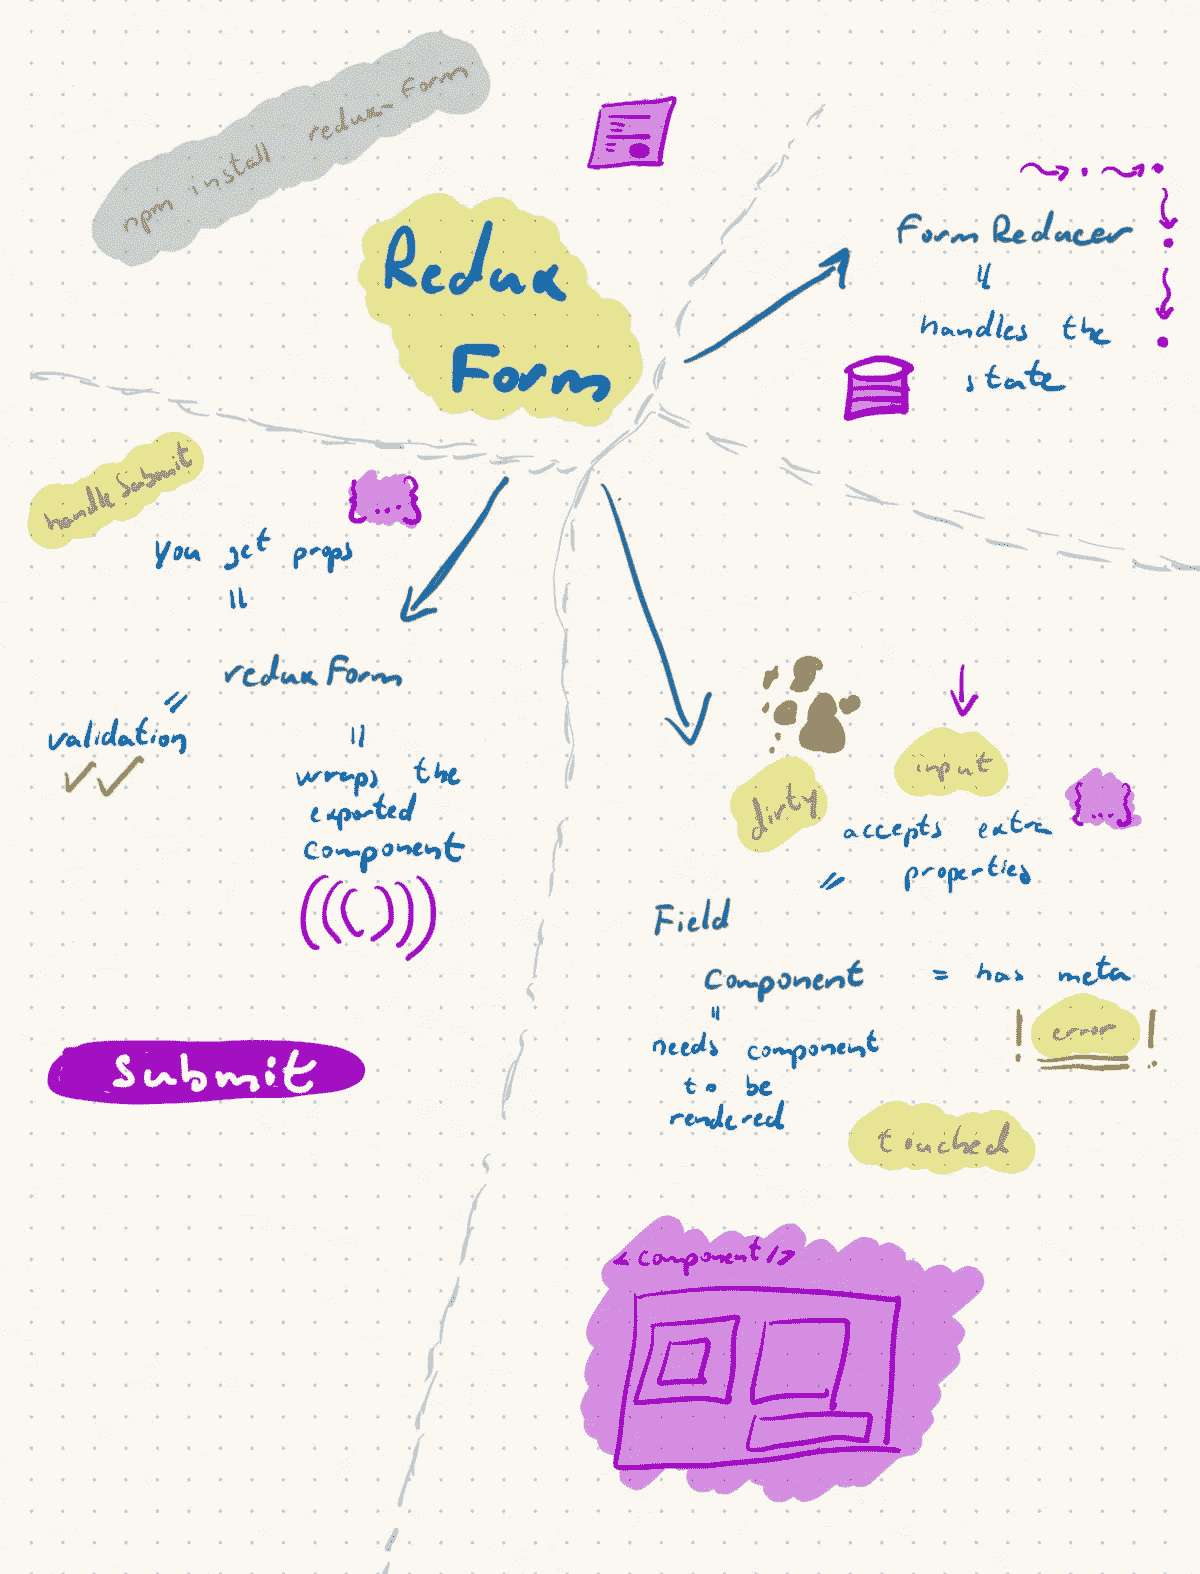 npm install redux-form
Redux
Form
Form Reducer
handles the
state
handleSubmit
{...}
you get props
redux Form
validation
wraps the
exported
component
Submit
dirty
input
{...}
accepts extra
properties
Field
Component = has meta
! error !
needs component
to be
rendered
touched
<component/>